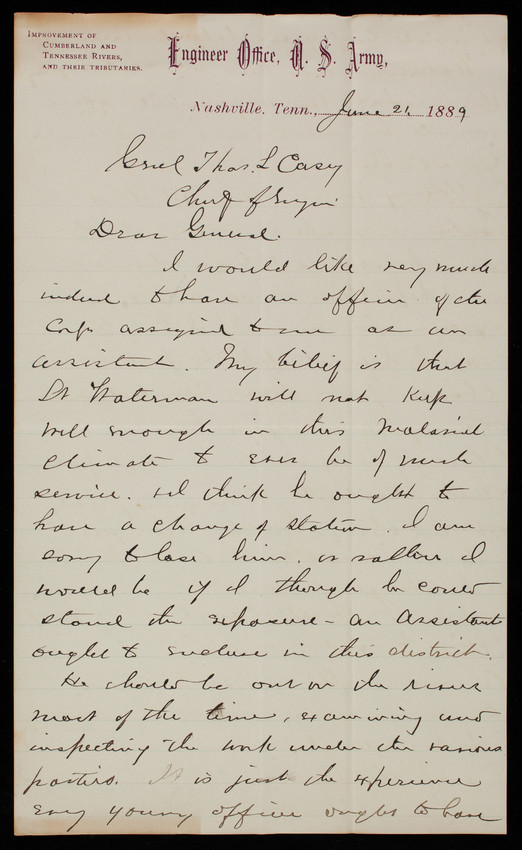 IMPROVEMENT OF
CUMBERLAND AND
TENNESSEE RIVERS,
AND THEIR TRIBUTARIES.
Engineer Office, U. S. Army,
Nashville, Tenn., June 21, 1889
Genl Thos L Casey
Chief of Engrs
Dear General.
I would like very much
indeed to have an officer of the
Corps assigned to me as an
assistant. My belief is that
Lt Waterman will not keep
well enough in this Malarial
climate to ever be of much
service. & I think he ought to
have a change of station. I am
sorry to lose him. or rather I
would be if I though he could
stand the exposure - an Assistant
ought to endure in this district.
He should be out on the rivers
most of the time, examining and
inspecting the work under the various
parties. It is just the experience
every young officer ought to have